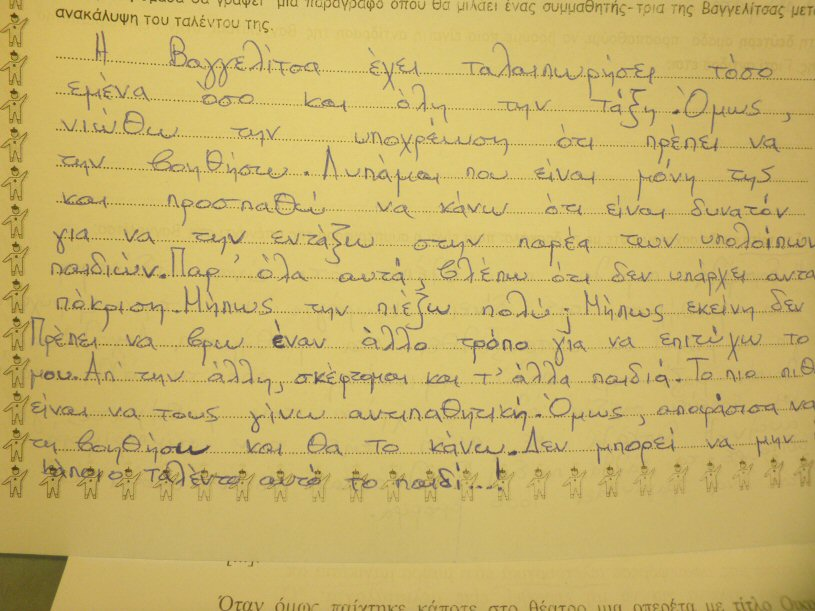 θα γράψει μια παράγραφο όπου θα μιλάει ένας συμμαθητής-τρια της Βαγγελίτσας μετά
ανακάλυψη του ταλέντου της.
Η Βαγγελίτσα έχει ταλαιπωρήσει τόσο
εμένα όσο και όλη την τάξη. Όμως,
νιώθω την υποχρέωση ότι πρέπει να
την βοηθήσω. Λυπάμαι που είναι μόνη της
και προσπαθώ να κάνω ότι είναι δυνατόν
για να την εντάξω στην παρέα των υπολοίπων
παιδιών. Παρ' όλα αυτά, βλέπω ότι δεν υπάρχει αντα
πόκριση. Μήπως την πιέζω πολύ; Μήπως εκείνη δεν
Πρέπει να βρω έναν άλλο τρόπο για να επιτύχω το
μου. Απ' την άλλη, σκέφτομαι και τ' άλλα παιδιά. Το πιο πιθ
είναι να τους γίνω αντιπαθητική. Όμως, αποφάσισα να
τη βοηθήσω και θα το κάνω. Δεν μπορεί να μην
κάποιο ταλέντο αυτό το παιδί...!
Όταν όμως παίχτηκε κάποτε στο θέατρο μια οπερέτα με τίτλο